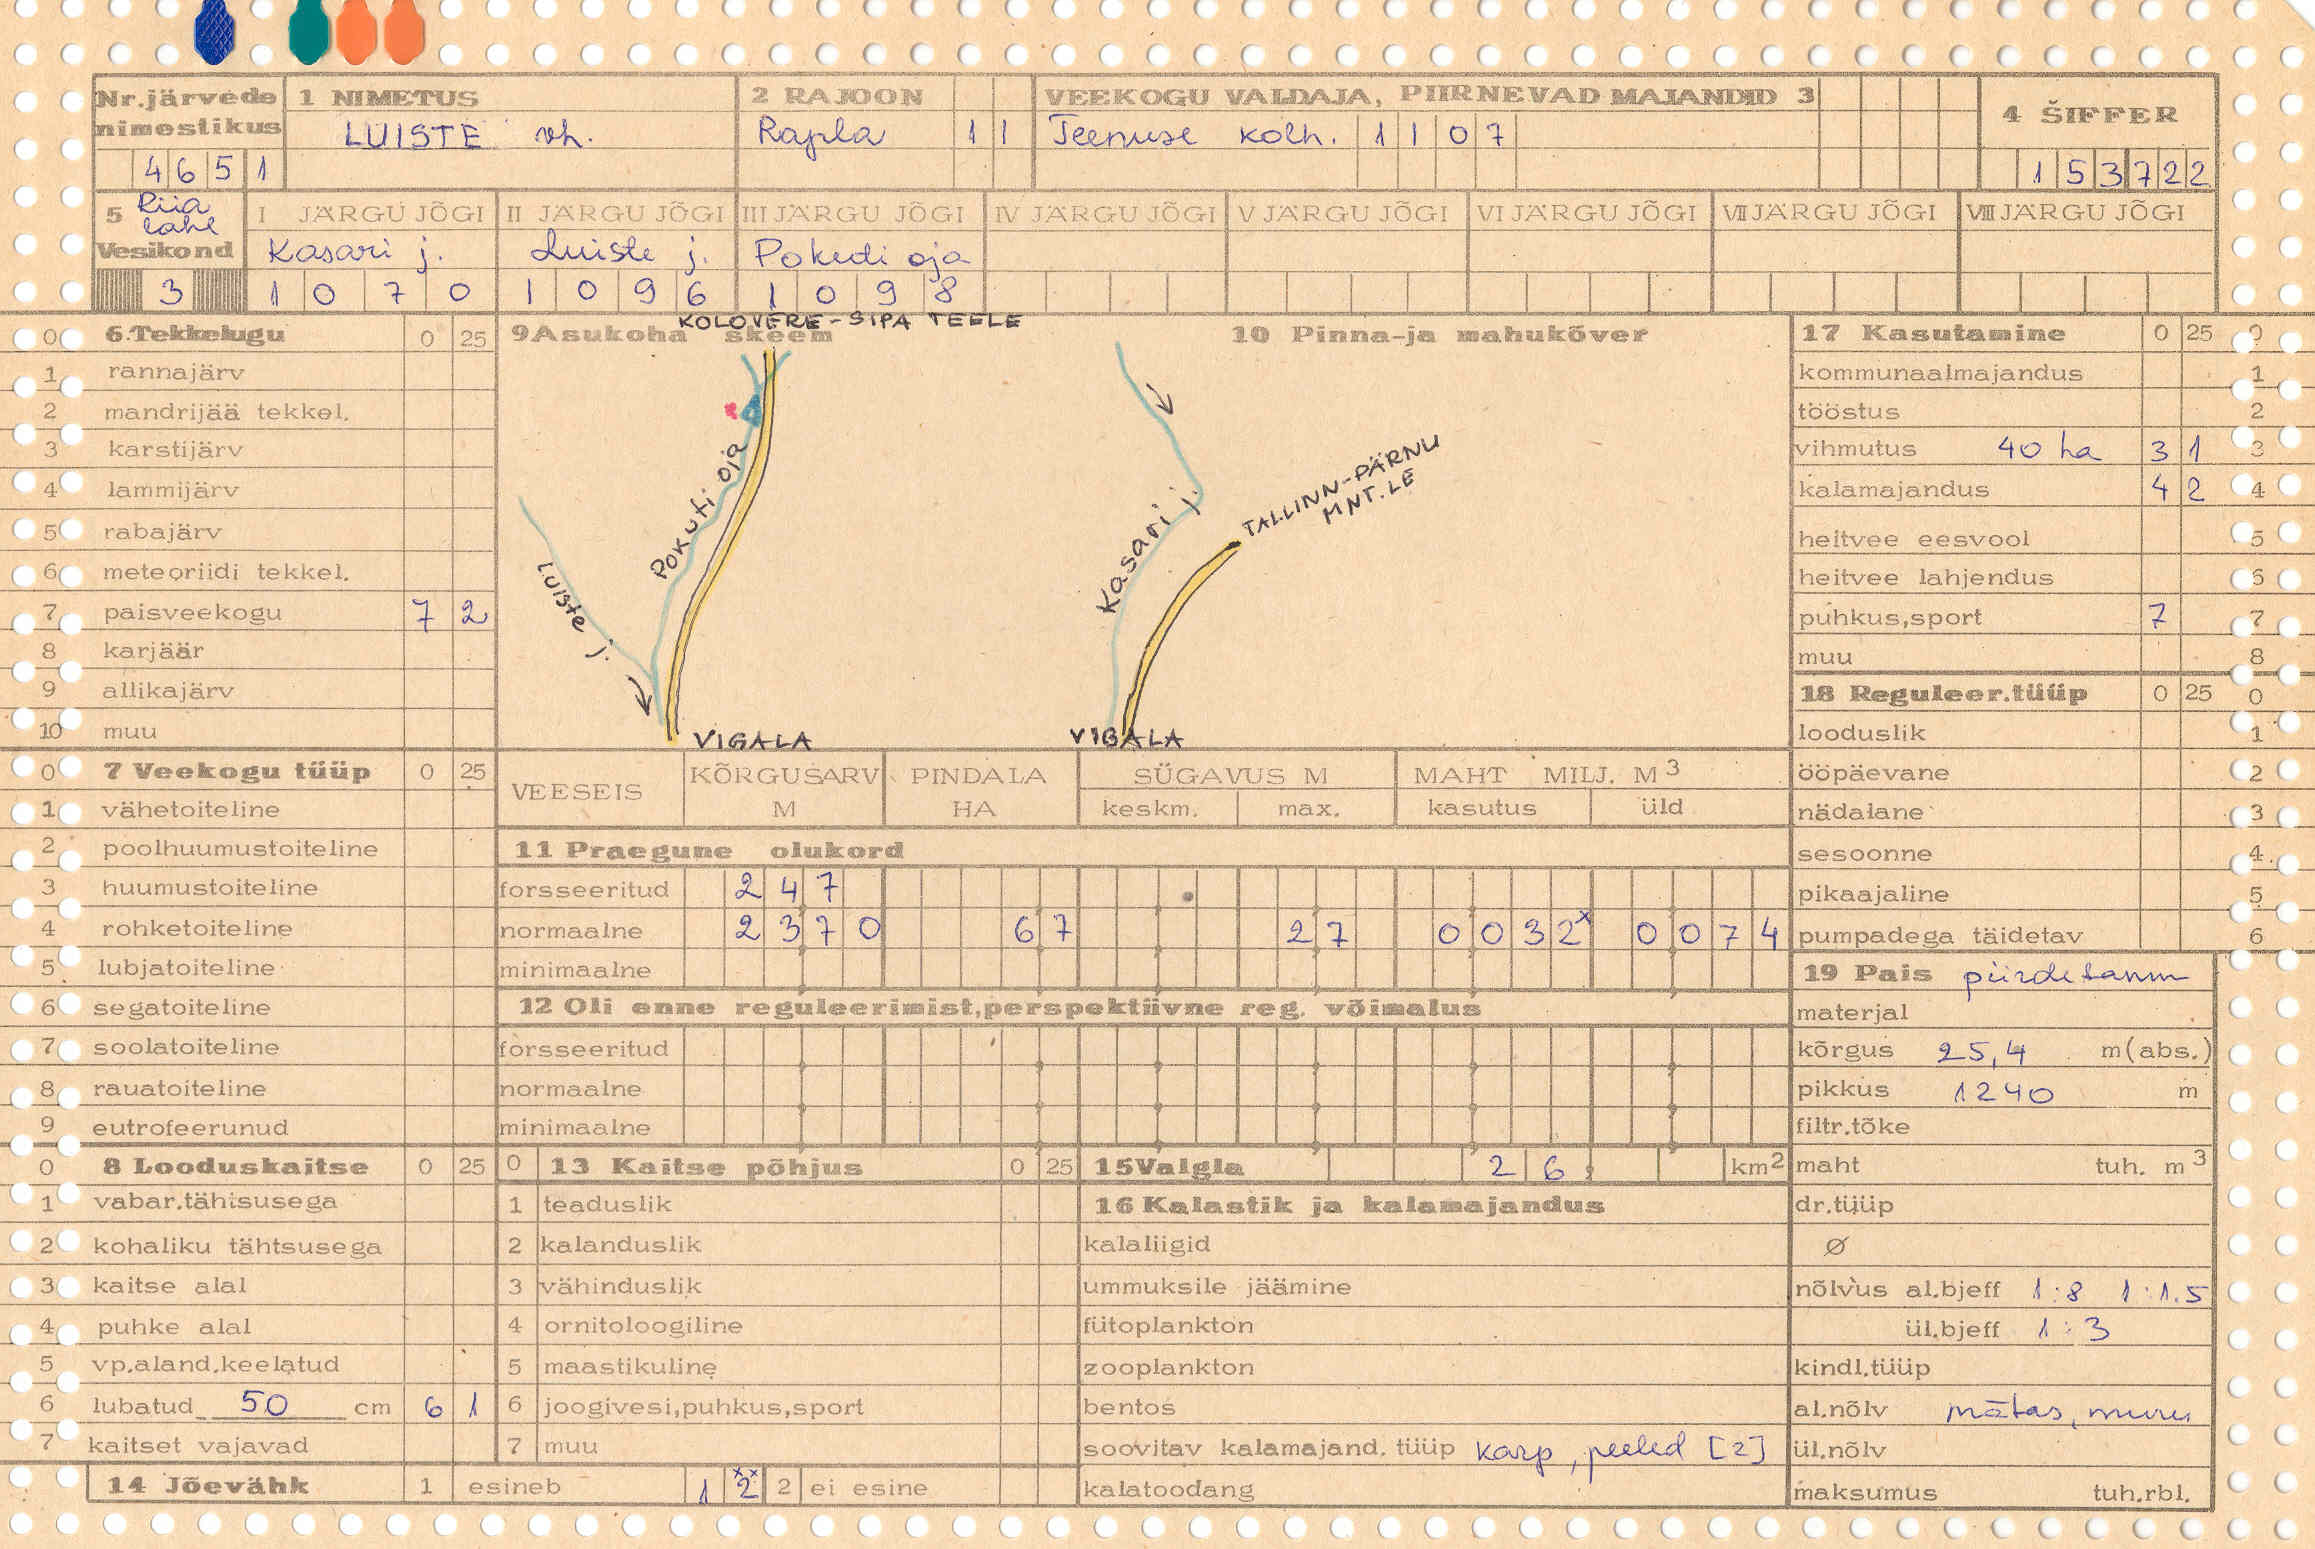 Nr.järvede nimestikus 4651
1 NIMETUS LUISTE vh.
2 RAJOON Rapla 11
VEEKOGU VALDAJA, PIIRNEVAD MAJANDID 3
Teenuse kolh. 1107
4 ŠIFFER 153722
5 Riia lahe Vesikond 3
I JÄRGU JÕGI Kasari j. 1070
II JÄRGU JÕGI Luiste j. 1096
III JÄRGU JÕGI Pokuti oja 1098
IV JÄRGU JÕGI
V JÄRGU JÕGI
VI JÄRGU JÕGI
VII JÄRGU JÕGI
VIII JÄRGU JÕGI
0 6.Tekkelugu 0 25
1 rannajärv
2 mandrijää tekkel.
3 karstijärv
4 lammijärv
5 rabajärv
6 meteoriidi tekkel.
7 paisveekogu 7 2
8 karjäär
9 allikajärv
10 muu
KOLOVERE-SIPA TEELE
9 Asukoha skeem
10 Pinna-ja mahukõver
Pokuti oja
LUISTE j.
VIGALA
Kasari j.
TALLINN-PÄRNU
MNT.LE
VIGALA
17 Kasutamine 0 25 0
kommunaalmajandus 1
tööstus 2
vihmutus 40 ha 3 1 3
kalamajandus 4 2 4
heitvee eesvool 5
heitvee lahjendus 6
puhkus,sport 7 7
muu 8
18 Reguleer.tüüp 0 25 0
looduslik 1
ööpäevane 2
nädalane 3
sesoonne 4
pikaajaline 5
pumpadega täidetav 6
0 7 Veekogu tüüp 0 25
1 vähetoiteline
2 poolhuumustoiteline
3 huumustoiteline
4 rohketoiteline
5 lubjatoiteline
6 segatoiteline
7 soolatoiteline
8 rauatoiteline
9 eutrofeerunud
VEESEIS KÕRGUSARV M PINDALA HA SÜGAVUS M keskm. max. MAHT MILJ. M3 kasutus üld
11 Praegune olukord
forsseeritud 247
normaalne 2370 67 27 0032x 0074
minimaalne
12 Oli enne reguleerimist,perspektiivne reg. võimalus
forsseeritud
normaalne
minimaalne
19 Pais piirdetamm
materjal
kõrgus 25,4 m(abs.)
pikkus 1240 m
filtr.tõke
maht tuh. m3
dr.tüüp
Ø
nõlvus al.bjeff 1:8 1:1.5
ül.bjeff 1:3
kindl.tüüp
al.nõlv mätas, muru
ül.nõlv
maksumus tuh.rbl.
0 8 Looduskaitse 0 25
1 vabar.tähtsusega
2 kohaliku tähtsusega
3 kaitse alal
4 puhke alal
5 vp.aland.keelatud
6 lubatud 50 cm 6 1
7 kaitset vajavad
0 13 Kaitse põhjus 0 25
1 teaduslik
2 kalanduslik
3 vähinduslik
4 ornitoloogiline
5 maastikuline
6 joogivesi,puhkus,sport
7 muu
15 Valgla 26, km2
16 Kalastik ja kalamajandus
kalaliigid
ummuksile jäämine
fütoplankton
zooplankton
bentos
soovitav kalamajand. tüüp karp, peled [2]
kalatoodang
14 Jõevähk 1 esineb 1 2xx 2 ei esine